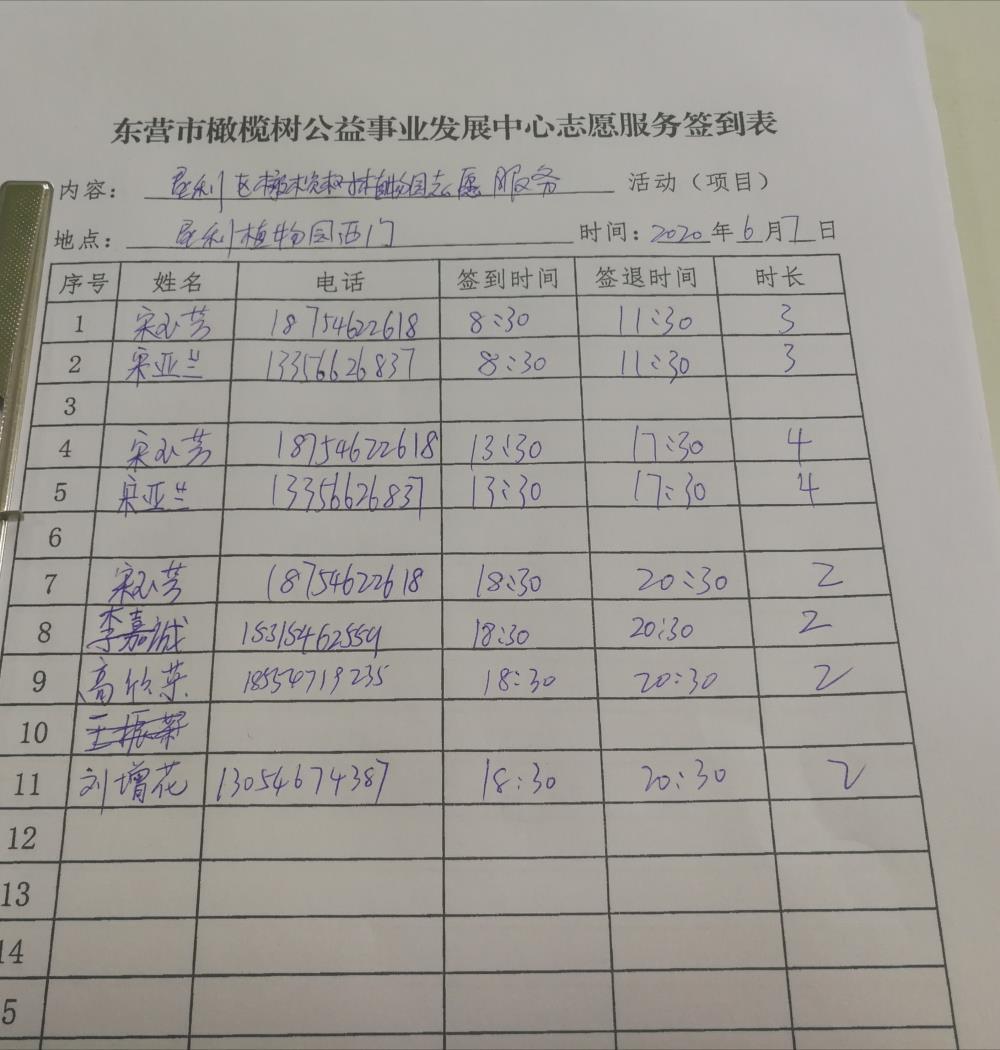 东营市橄榄树公益事业发展中心志愿服务签到表
内容： 垦利区橄榄树植物园志愿服务 活动（项目）
地点： 垦利植物园西门 时间：2020年6月7日
序号 姓名 电话 签到时间 签退时间 时长
1 宋玉芳 18754622618 8:30 11:30 3
2 宋亚兰 13356626837 8:30 11:30 3
3
4 宋玉芳 18754622618 13:30 17:30 4
5 宋亚兰 13356626837 13:30 17:30 4
6
7 宋玉芳 18754622618 18:30 20:30 2
8 李嘉诚 15315462559 18:30 20:30 2
9 高欣荣 18554719235 18:30 20:30 2
10 王振
11 刘增花 13054674387 18:30 20:30 2
12
13
14
5